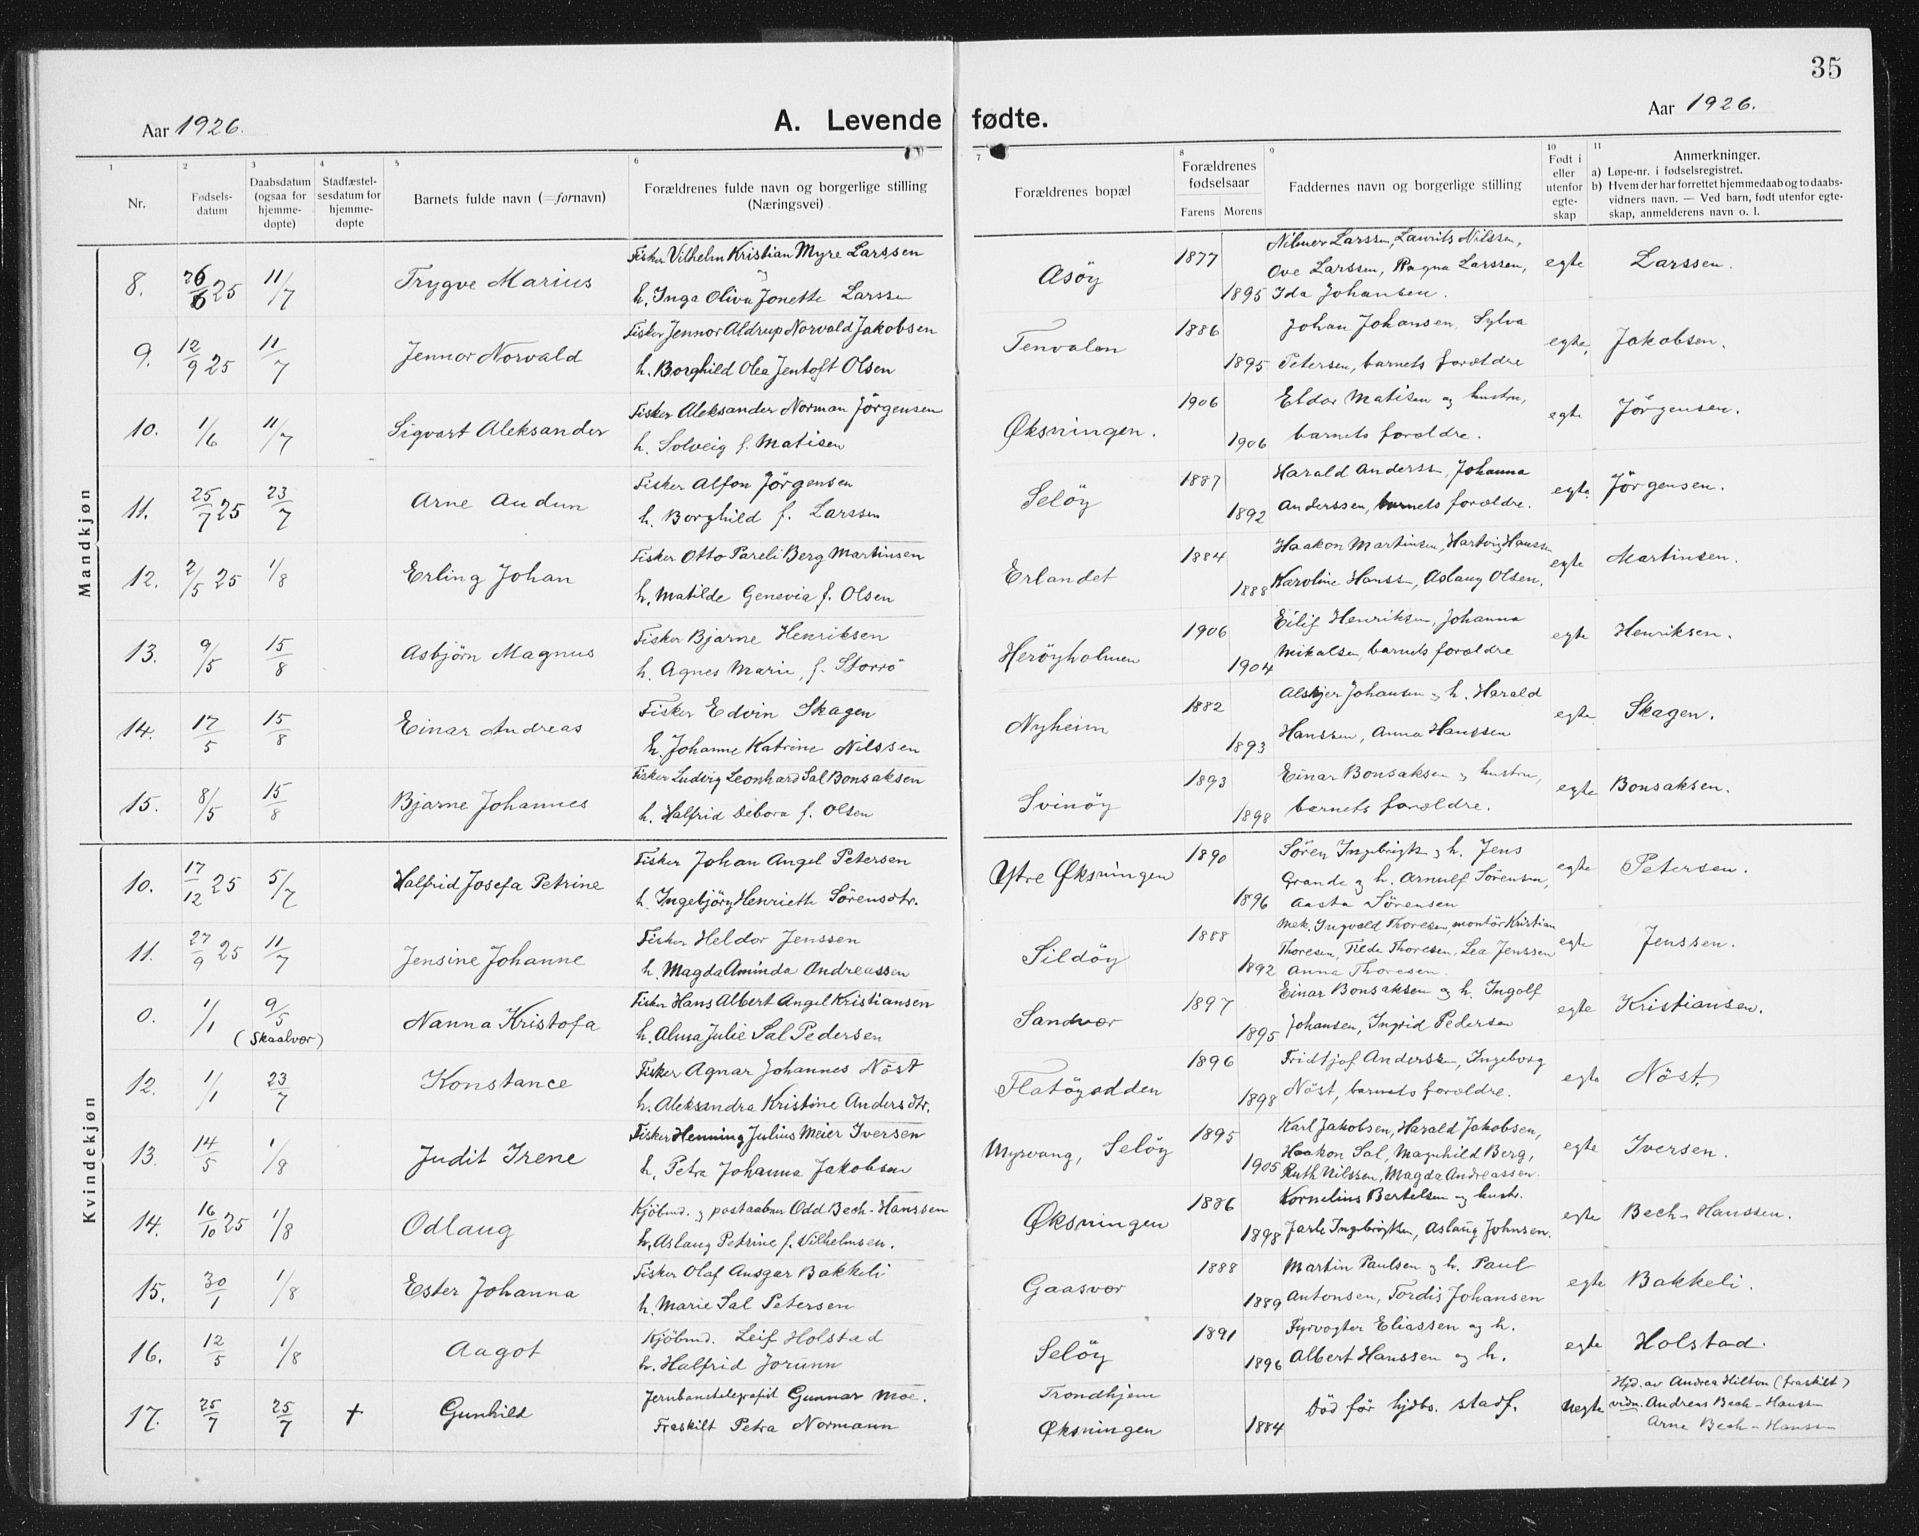 35
Aar 1926.
A. Levende fødte.
Aar 1926.
1 2 3 4 5 6 7 8 9 10 11
Nr.
Fødsels-
datum
Daabsdatum
(ogsaa for
hjemme-
døpte)
Stadfæstel-
sesdatum for
hjemme-
døpte
Barnets fulde navn (=fornavn)
Forældrenes fulde navn og borgerlige stilling
(Næringsvei)
Forældrenes bopæl
Forældrenes
fødselsaar
Farens Morens
Faddernes navn og borgerlige stilling
Født i
eller
utenfor
egte-
skap
Anmerkninger.
a) Løpe-nr. i fødselsregistret.
b) Hvem der har forrettet hjemmedaab og to daabs-
vidners navn. — Ved barn, født utenfor egte-
skap, anmelderens navn o. l.
Mandkjøn
8. 26/6 25 11/7 Trygve Marius
Fisker Vilhelm Kristian Myre Larssen
og
h. Inga Oliva Jonette Larssen
Asöy 1877 1895
Nilmer Larssen, Laurits Nilssen,
Ove Larssen, Ragna Larssen,
Ida Johansen.
egte Larssen.
9. 12/9 25 11/7 Jennor Norvald
Fisker Jennor Aldrup Norvald Jakobsen
h. Borghild Olea Jentoft Olsen
Tenvalen 1886 1895
Johan Johansen, Sylva
Petersen, barnets forældre
egte, Jakobsen.
10. 1/6 11/7 Sigvart Aleksander
Fisker Aleksander Norman Jörgensen
h. Solveig f. Matisen
Øksningen. 1906 1906
Eldor Matisen og hustru,
barnets forældre.
egte Jörgensen.
11. 25/7 25 23/7 Arne Audun
Fisker Alfon Jörgensen
h. Borghild f. Larssen
Selöy 1887 1892
Harald Anderssn, Johanna
Anderssen, barnets forældre.
egte Jörgensen.
12. 2/5 25 1/8 Erling Johan
Fisker Otto Pareli Berg Martinsen
h. Matilde Genevia f. Olsen
Erlandet 1884 1888
Haakon Martinsen, Hartvig Hanssen
Karoline Hanssn, Aslaug Olsen.
egte Martinsen.
13. 9/5 15/8 Asbjörn Magnus
Fisker Bjarne Henriksen
h. Agnes Marie, f. Storrö
Heröyholmen 1906 1904
Eilif Henriksen, Johanna
Mikalsen, barnets forældre
egte Henriksen.
14. 17/5 15/8 Einar Andreas
Fisker Edvin Skagen
h. Johanne Katrine Nilssen
Nyheim 1882 1893
Johansen og h. Harald
Hanssen, Anna Hanssen
egte Skagen.
15. 8/5 15/8 Bjarne Johannes
Fisker Ludvig Leonhard Sal Bonsaksen
h. Halfrid Debora f. Olsen
Svinöy 1893 1898
Einar Bonsaksen og hustru,
barnets forældre.
egte Bonsaksen.
Kvindekjøn
10. 17/12 25 5/7 Halfrid Josefa Petrine
Fisker Johan Angel Petersen
h. Ingebjörg Henriette Sörensdtr.
Ytre Øksningen 1890 1896
Sören Ingebrigts og h. Jens
Grande og h. Arnulf Sörensen,
Aasta Sörensen
egte Petersen.
11. 27/9 25 11/7 Jensine Johanne
Fisker Heldor Jenssen
h. Magda Aminda Andreassen
Sildöy 1888 1892
Mek. Ingvald Thoresen, montör Kristian
Thoresen, Tilda Thoresen, Lea Jenssen
Anna Thoresen.
egte Jenssen.
0. 1/1 9/5 (Skaalvær) Nanna Kristofa
Fisker Hans Albert Angel Kristiansen
h. Alma Julie Sal Pedersen
Sandvær 1897 1895
Einar Bonsaksen og h. Ingolf
Johansen, Ingrid Pedersen
egte Kristiansen.
12. 1/1 23/7 Konstance
Fisker Agnar Johannes Nöst
h. Aleksandra Kristine Andersdtr.
Flatöyodden 1896 1898
Fridtjof Anderssen, Ingeborg
Nöst, barnets forældre.
egte Nöst.
13. 14/5 1/8 Judit Irene
Fisker Henning Julius Meier Iversen
h. Petra Johanna Jakobsen
Myrvang, Selöy 1895 1905
Karl Jakobsen, Harald Jakobsen,
Haakon Sal, Magnhild Berg,
Ruth Nilssen, Magda Andreassen.
egte Iversen.
14. 16/10 25 1/8 Odlaug
Kjöbmd. og postaabner Odd Bech-Hanssen
h. Aslaug Petrine f. Vilhelmsen.
Øksningen 1886 1898
Kornelius Bertelsen og hustr.
Jarle Ingebrigtsen, Aslaug Johnsen.
egte Bech-Hanssen.
15. 30/1 1/8 Ester Johanna
Fisker Olaf Ansgar Bakkeli
h. Marie Sal Petersen
Gaasvær 1888 1889
Martin Paulsen og h. Paul
Antonsen, Tordis Johansen
egte Bakkeli.
16. 12/5 1/8 Aagot
Kjöbmd. Leif Holstad
h. Halfrid Jorunn
Selöy 1891 1896
Fyrvogter Eliassen og h.
Albert Hanssen og h.
egte Holstad.
17. 25/7 25/7 + Gunhild
Jernbanetelegrafist Gunnar Moe.
Fraskilt Petra Normann
Trondhjem
Øksningen 1884
Död för hjdbs. stadf.
uegte
Hjd. av Andrea Hilton (fraskilt)
vidn. Andreas Bech-Hanssen
Arne Bech-Hanssen